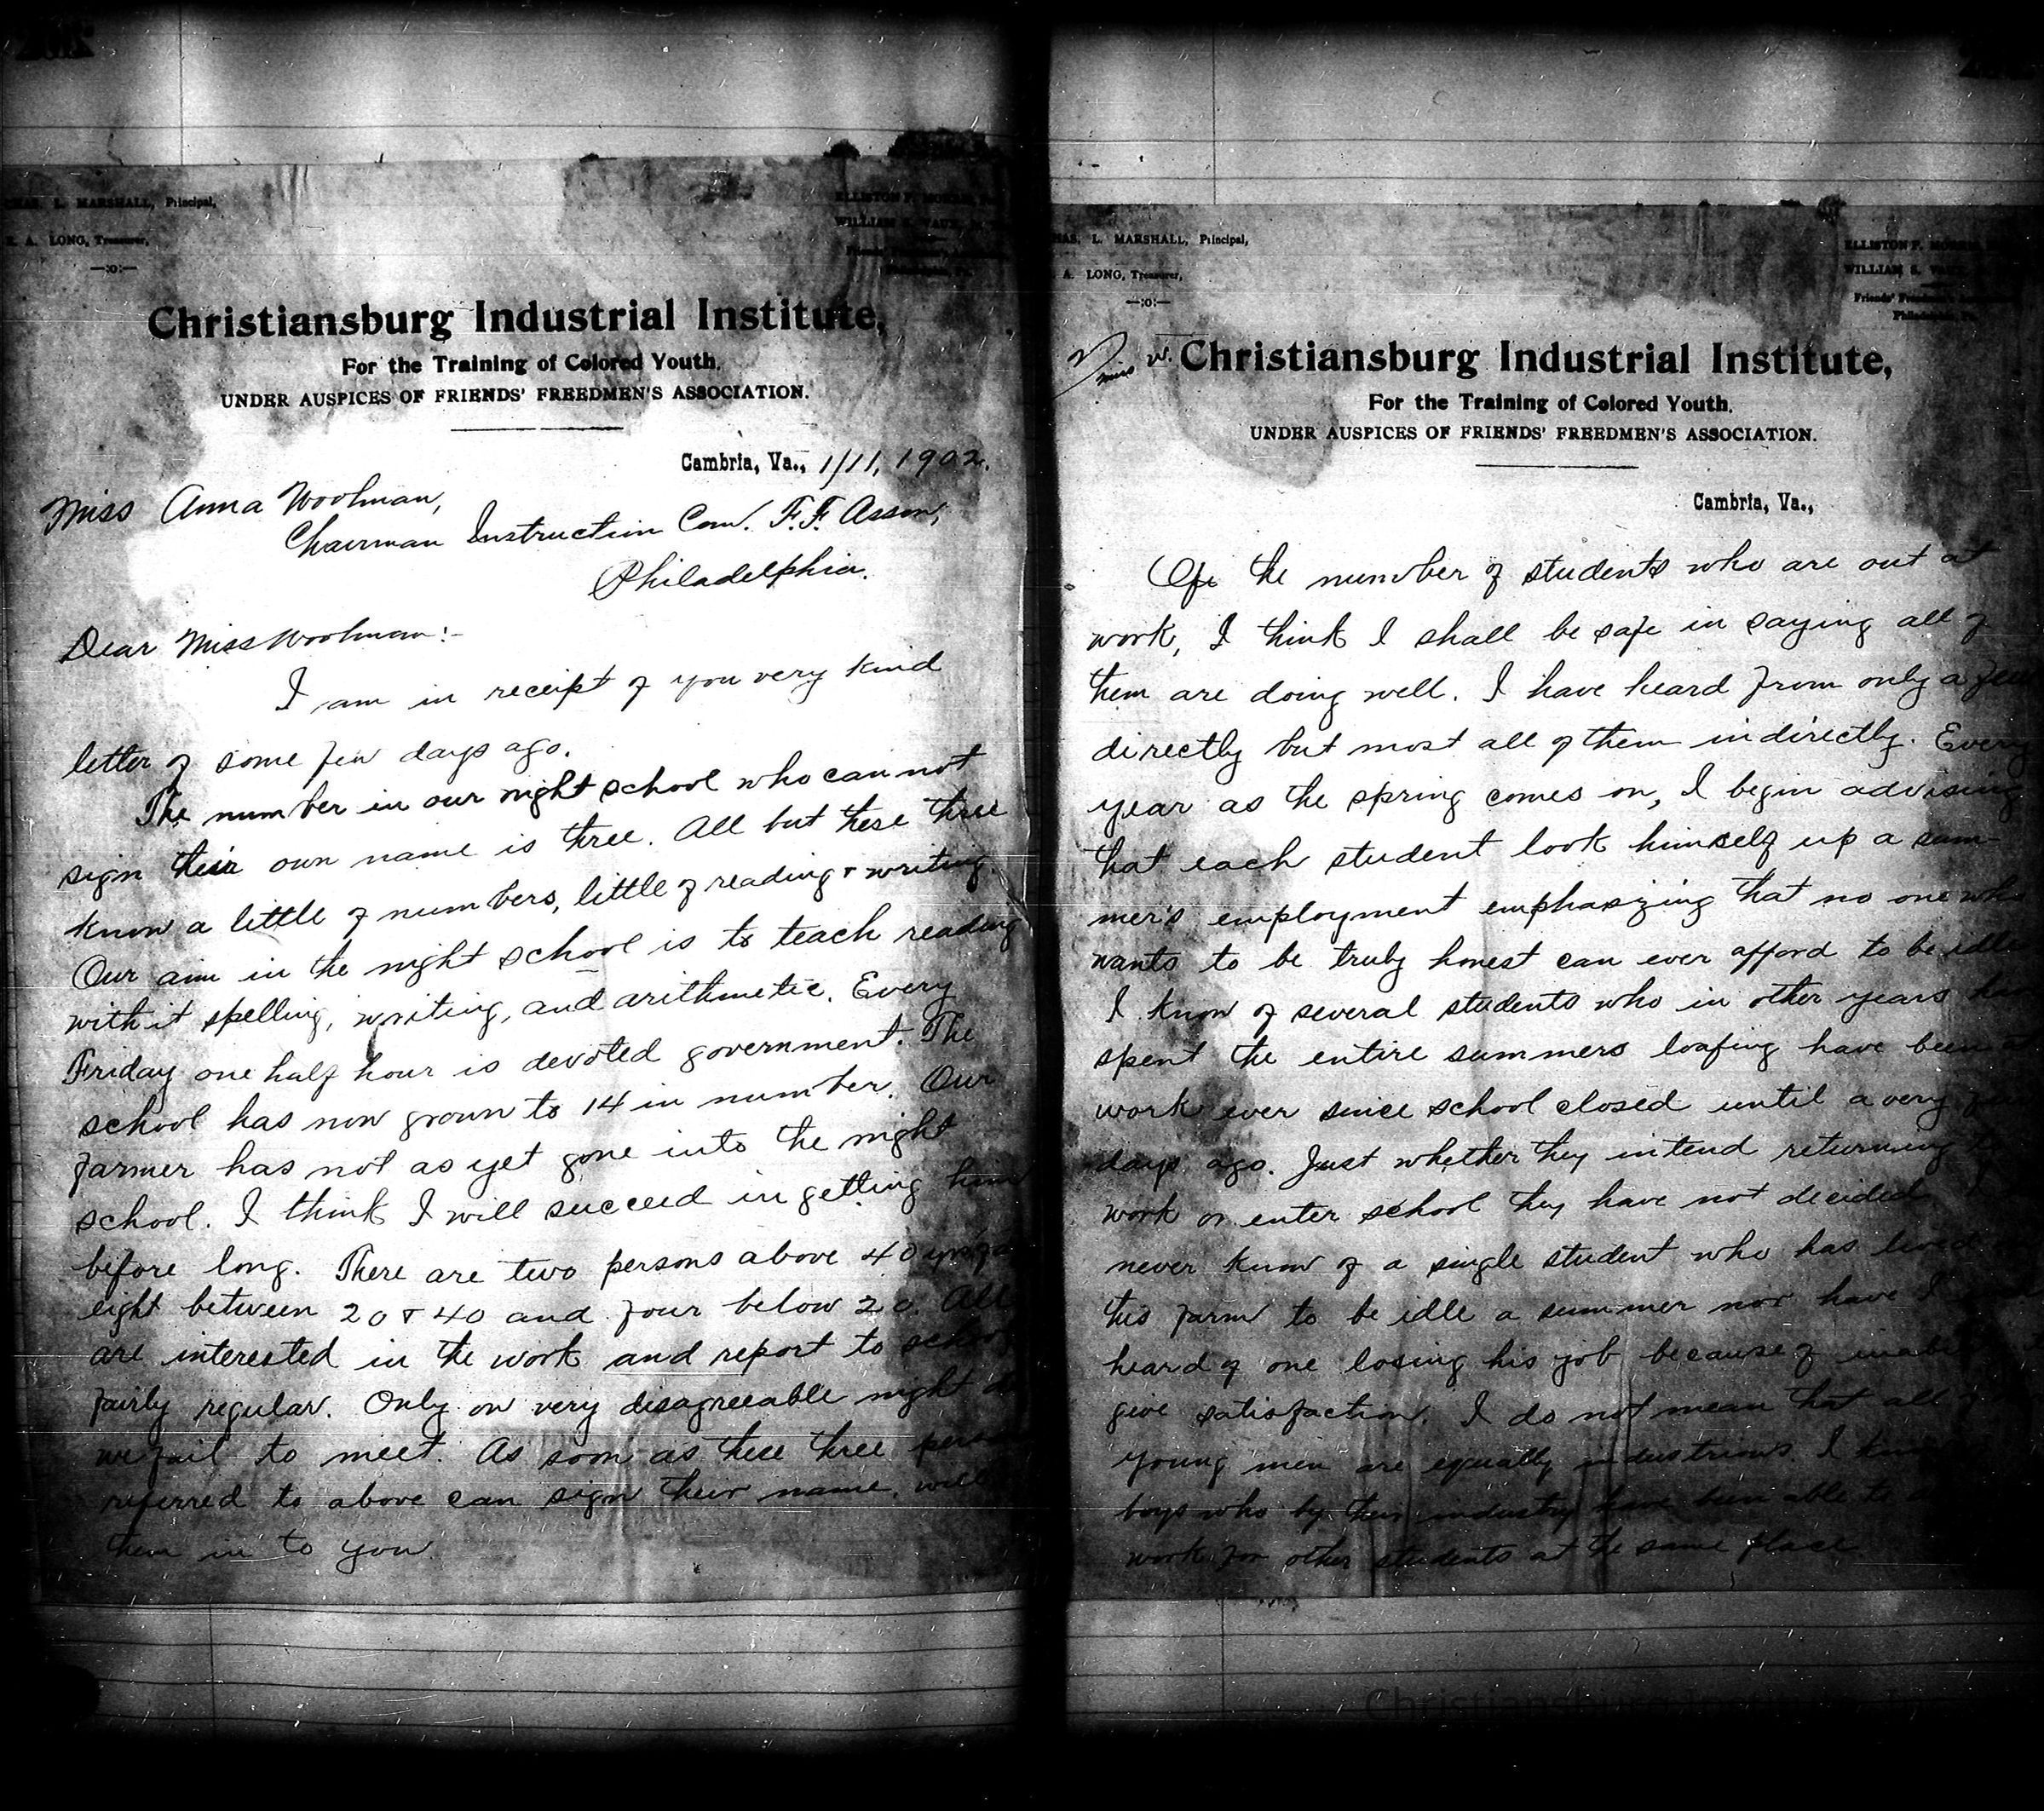 CHAS. L. MARSHALL, Principal,
A. LONG, Treasurer,
—:o:—
ELLISTON P. MORRIS,
WILLIAM S.
Christiansburg Industrial Institute,
For the Training of Colored Youth.
UNDER AUSPICES OF FRIENDS' FREEDMEN'S ASSOCIATION.
Cambria, Va., 1/11, 1902.
Miss Anna Woolman,
Chairman Instruction Com. F.F. Assn,
Philadelphia.
Dear Miss Woolman:-
I am in receipt of you very kind
letter of some few days ago.
The number in our night school who can not
sign their own name is three. All but these three
know a little of numbers, little of reading & writing.
Our aim in the night school is to teach reading
with it spelling, writing, and arithmetic. Every
Friday one half hour is devoted government. The
school has now grown to 14 in number. Our
farmer has not as yet gone into the night
school. I think I will succeed in getting him
before long. There are two persons above 40 yrs
eight between 20 & 40 and four below 20. All
are interested in the work and report to school
fairly regular. Only on very disagreeable night do
we fail to meet. As soon as these three
referred to above can sign their name, will
them in to you.
CHAS. L. MARSHALL, Principal,
A. LONG, Treasurer,
—:o:—
ELLISTON P.
WILLIAM S.
Friends'
Miss W.
Christiansburg Industrial Institute,
For the Training of Colored Youth.
UNDER AUSPICES OF FRIENDS' FREEDMEN'S ASSOCIATION.
Cambria, Va.,
Of the number of students who are out at
work, I think I shall be safe in saying all of
them are doing well. I have heard from only a few
directly but most all of them indirectly. Every
year as the spring comes on, I begin advising
that each student look himself up a sum-
mer's employment emphasizing that no one who
wants to be truly honest can ever afford to be idle
I know of several students who in other years have
spent the entire summers loafing have been at
work ever since school closed until a very few
days ago. Just whether they intend returning to
work or enter school they have not decided. I
never know of a single student who has lived
this farm to be idle a summer nor have I
heard of one losing his job because of
give satisfaction. I do not mean that all
young men are equally industrious. I know
boys who by their industry have been able to
work for other students at the same place
Christiansburg Institute